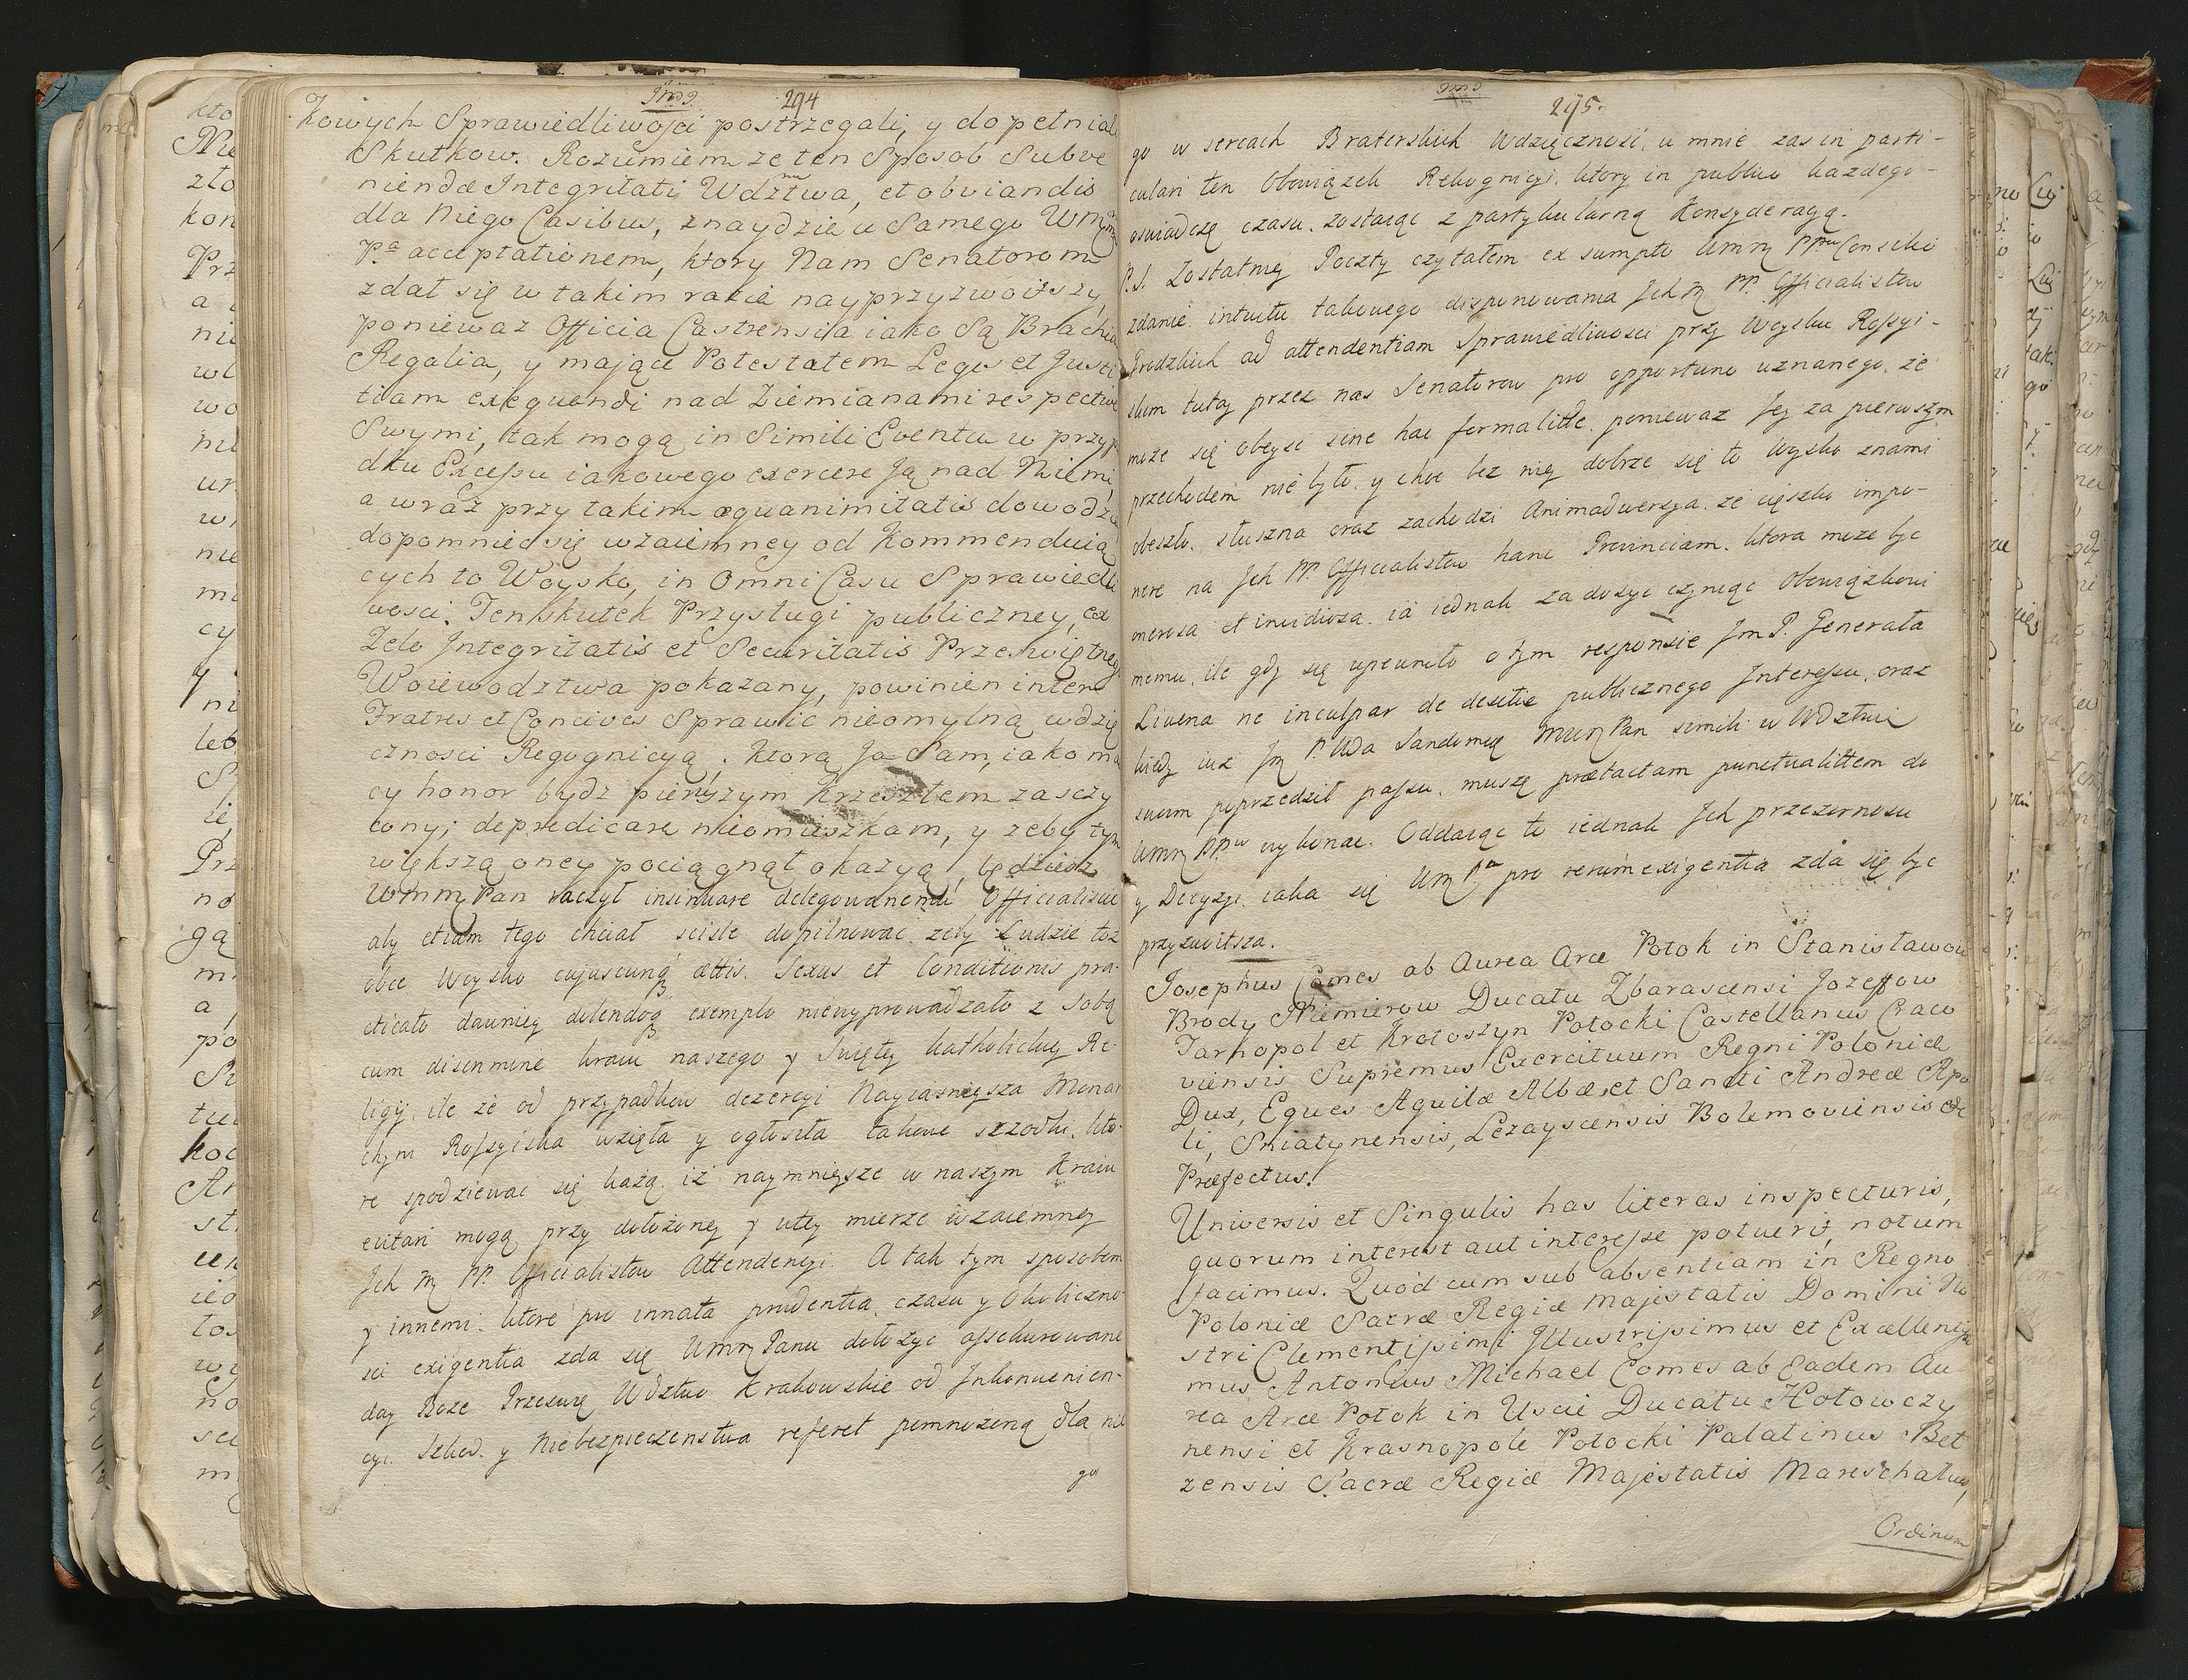 294
kowych Sprawiedliwości postrzegali, y dopełniali
Skutkow. Rozumiem ze ten Sposob Subve
niendæ Integritati Wdztwa, et obviandis
dla Niego Casibus, znaydzie u Samego Wm
Pa acceptationem, ktory Nam Senatorom
zdał się w takim razie nayprzyzwoitszy,
poniewaz Officia Castrensia iako Są Brachia
Regalia, y maiące Potestatem Leges et Justi
tiam exequendi nad Ziemianami respective
Swymi, tak mogą in Simili Eventu w przyp
dku Excessu iakowego exercere Ją nad Niemi,
a wraz przy takim æquanimitatis dowodzie
dopomniec się wzaiemney od Kommenduią
cych to Woysko, in Omni Casu Sprawiedli
wosci. Ten skutek Przysługi publiczney, ex
Zelo Integritatis et Securitatis Przeswiętnego
Woiewodztwa pokazany, powinien inter
Fratres et Concives Sprawic nieomylną wdzię
cznosci Regognicyą. Ktorą Ja Sam, iako ma
cy honor bydz pierwszym Krzesztem zasczy
cony; depredicare nieomieszkam, y zeby tym
większą oney pociągnął okazyą, będziesz
WmmPan raczył insinuare delegowanemu Officialiscie
aby etiam tego chciał sciśle dopilnowac, zeby Ludzie toz
obce Woysko cujuscunq ættis. Sexus et Conditionis pra-
cticato dawniey dolendog exemplo niewyprowadzało z Sobą
cum discrimine kraiu naszego y Swiętey Katholickiey Re-
ligij, ile że od przypadkow dezercyi Nayiasnieysza Monar
chym Rossyiska wzięła y ogłosiła takowe srzodki, kto-
re spodziewac się każą, iż naymnieysze w naszym Kraiu
evitari mogą przy dołożoney y utey mierze wzaiemney
Ich m PP. Officialistow Attendencyi. A tak tym sposobem
y innemi, ktore pro innata prudentia, czasu y Okoliczno-
sci exigentia zda się WmmPanu dołożyc assekurowane
day Boze Przeswię Wdztwo Krakowskie od Inkonwenien-
cyi, Szkod, y Niebezpieczenstwa referet pomnożoną dla nie
go
295.
go w sercach Braterskich Wdzięczność, u mnie zas in parti-
culari ten Obowiązek Rekognicyi, ktory in publico kazdego-
oswiadczę czasu, zostaiąc z partykularną Konsyderacyą.
P.S. Zostatniey Poczty czytałem ex sumptu Wmm PPow Consilio
zdanie intuitu takowego disponowania Ich m PP. Officialistow
Grodzkich ad attendentiam Sprawiedliwosci przy Woysku Rossyi-
skim tutay przez nas Senatorow pro opportuno uznanego, że
moze się obeysc sine hac formalitte, poniewaz Jey za pierwszym
przechodem nie było, y choc bez niey dobrze się to Woysko znami
obeszło, słuszna oraz zachodzi Animadwersya, ze cięszko impo-
nere na Ich PP. Officialistow hanc Provinciam, ktora moze byc
onerosa et invidiosa, ia iednak zadosyc czyniąc Obowiązkowi
memu, ile gdy się upewniło otym responsie Jm P. Generała
Livena ne inculpar de desertie publicznego Interessu, oraz
kiedy iuz Jm P. Wda Sandomię MwmPan simili w Wdztwie
suum poprzedził passu, muszę prætactam punctualittem do
Wmm PPow wykonac. Oddaiąc to iednak Ich przezornosci
y Decyzyi, iaka się Wm Pa pro rerum exigentia zda się byc
przyzwoitsza.
Josephus Comes ab Aurea Arce Potok in Stanisławow
Brody Niemierow Ducatu Zbarascensi Jozeffow
Tarnopol et Krotoszyn Potocki Castellanus Craco
viensis Supremus Exercituum Regni Poloniæ
Dux, Eques Aquilæ Albæ et Sancti Andreæ Apo
li, Sniatynensis, Lezayscensis Bolemoviensis &c
Præfectus.
Universis et Singulis has literas inspecturis,
quorum interest aut interesse potuerit, notum
facimus. Quod cum sub absentiam in Regno
Poloniæ Sacræ Regiæ Majestatis Domini No
stri Clementissimi Illustrissimus et Excellentissi
mus Antonius Michael Comes ab Eadem Au
rea Arce Potok in Uscie Ducatu Hołowczy
nensi et Krasnopole Potocki Palatinus Bet
zensis Sacræ Regiæ Majestatis Mareschalus,
Ordinum